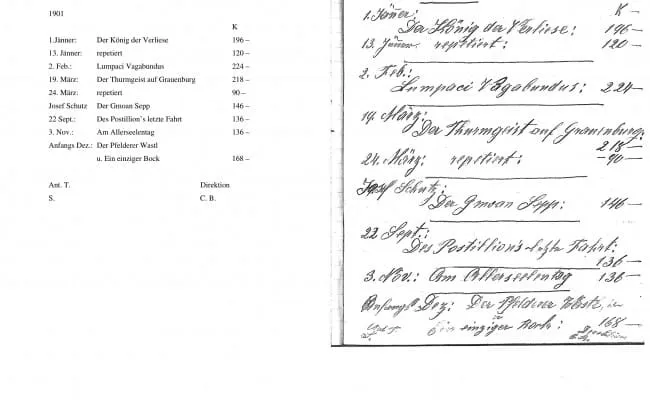 1901
K
1.Jänner: Der König der Verliese 196 –
13. Jänner: repetiert 120 –
2. Feb.: Lumpaci Vagabundus 224 –
19. März: Der Thurmgeist auf Grauenburg 218 –
24. März: repetiert 90 –
Josef Schutz Der Gmoan Sepp 146 –
22 Sept.: Des Postillion's letzte Fahrt 136 –
3. Nov.: Am Allerseelentag 136 –
Anfangs Dez.: Der Pfelderer Wastl
u. Ein einziger Bock 168 –
Ant. T. Direktion
S. C. B.
1. Jänner: K –
Der König der Verliese: 196 –
13. Jänner repetiert: 120 –
2. Feb.:
Lumpaci Vagabundus: 224 –
19. März:
Der Thurmgeist auf Grauenburg:
218 –
24. März: repetiert: – 90 –
Josef Schutz:
Der Gmoan Sepp: 146 –
22 Sept.:
Des Postillion's letzte Fahrt:
136 –
3. Nov.: Am Allerseelentag 136 –
Anfangs Dez: Der Pfelderer
Ein einziger Bock: 168 –
Direktion